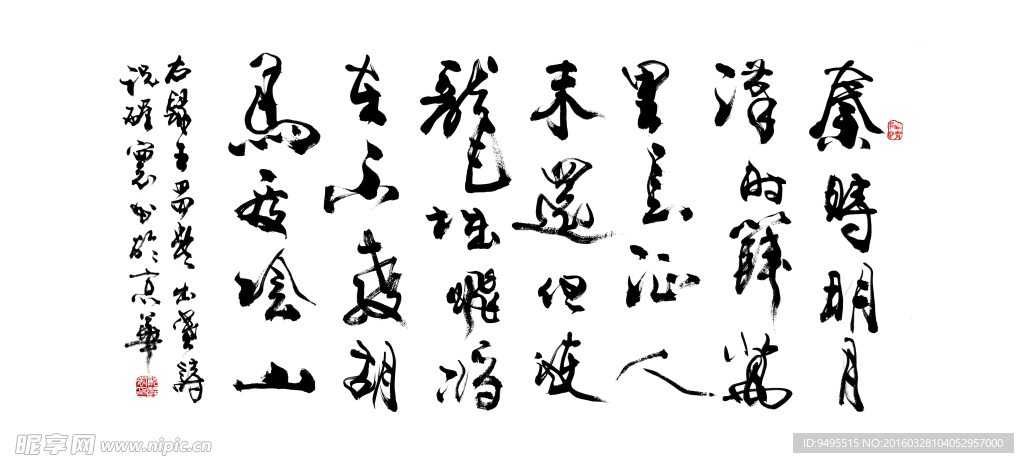 秦時明月
漢时關萬
里長征人
未還但使
龍城飛將
在不教胡
馬度陰山
右錄王昌齡出塞詩
书於京華
昵享网 www.nipic.cn
ID:9495515 NO:20160328104052957000